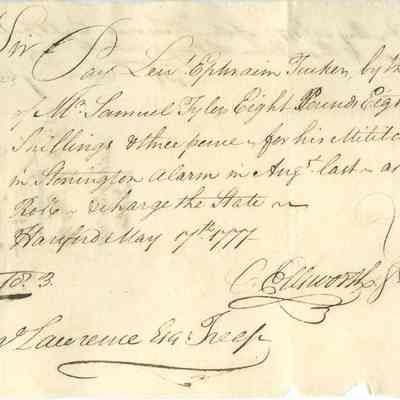 Sir
Pay Leut Ephraim Tucker, by the
of Mr Samuel Tyler Eight Pounds Eight
Shillings & three pence for his Milit
in Stonington Alarm in Augt last as
& charge the State
Harford May 17th 1777
8.3
O Ellsworth
Lawrence Esqr Treasr